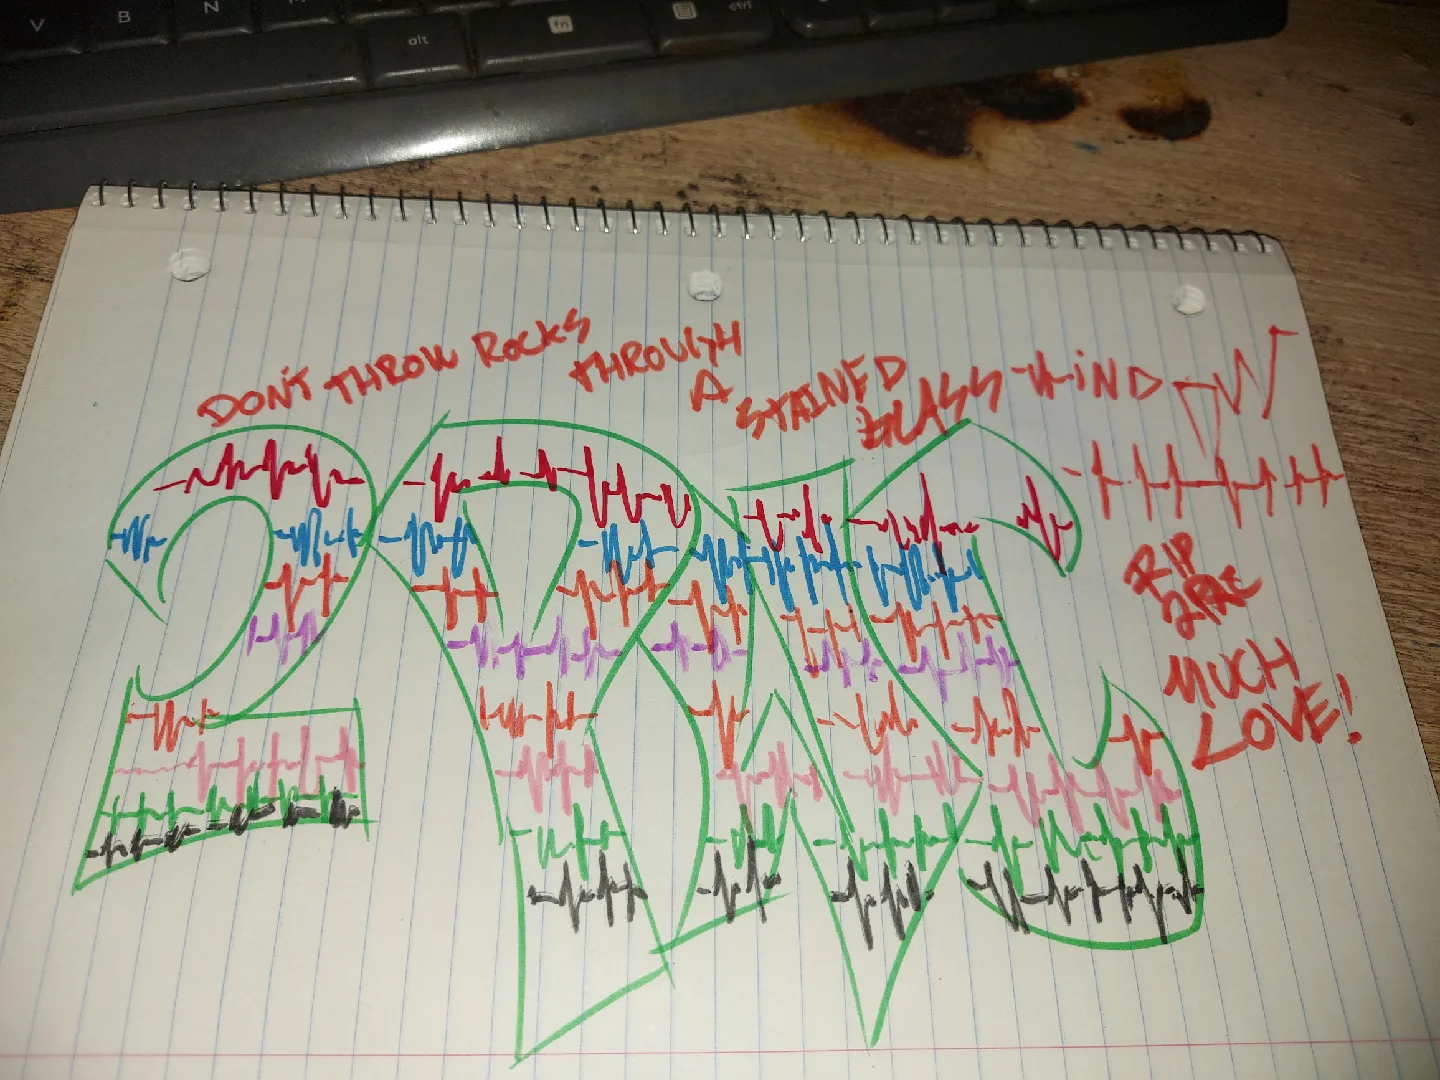 V B N
alt fn ctrl
DON'T THROW ROCKS THROUGH A STAINED GLASS WiNDOW
2PAC
RIP
2PAC
MUCH
LOVE!